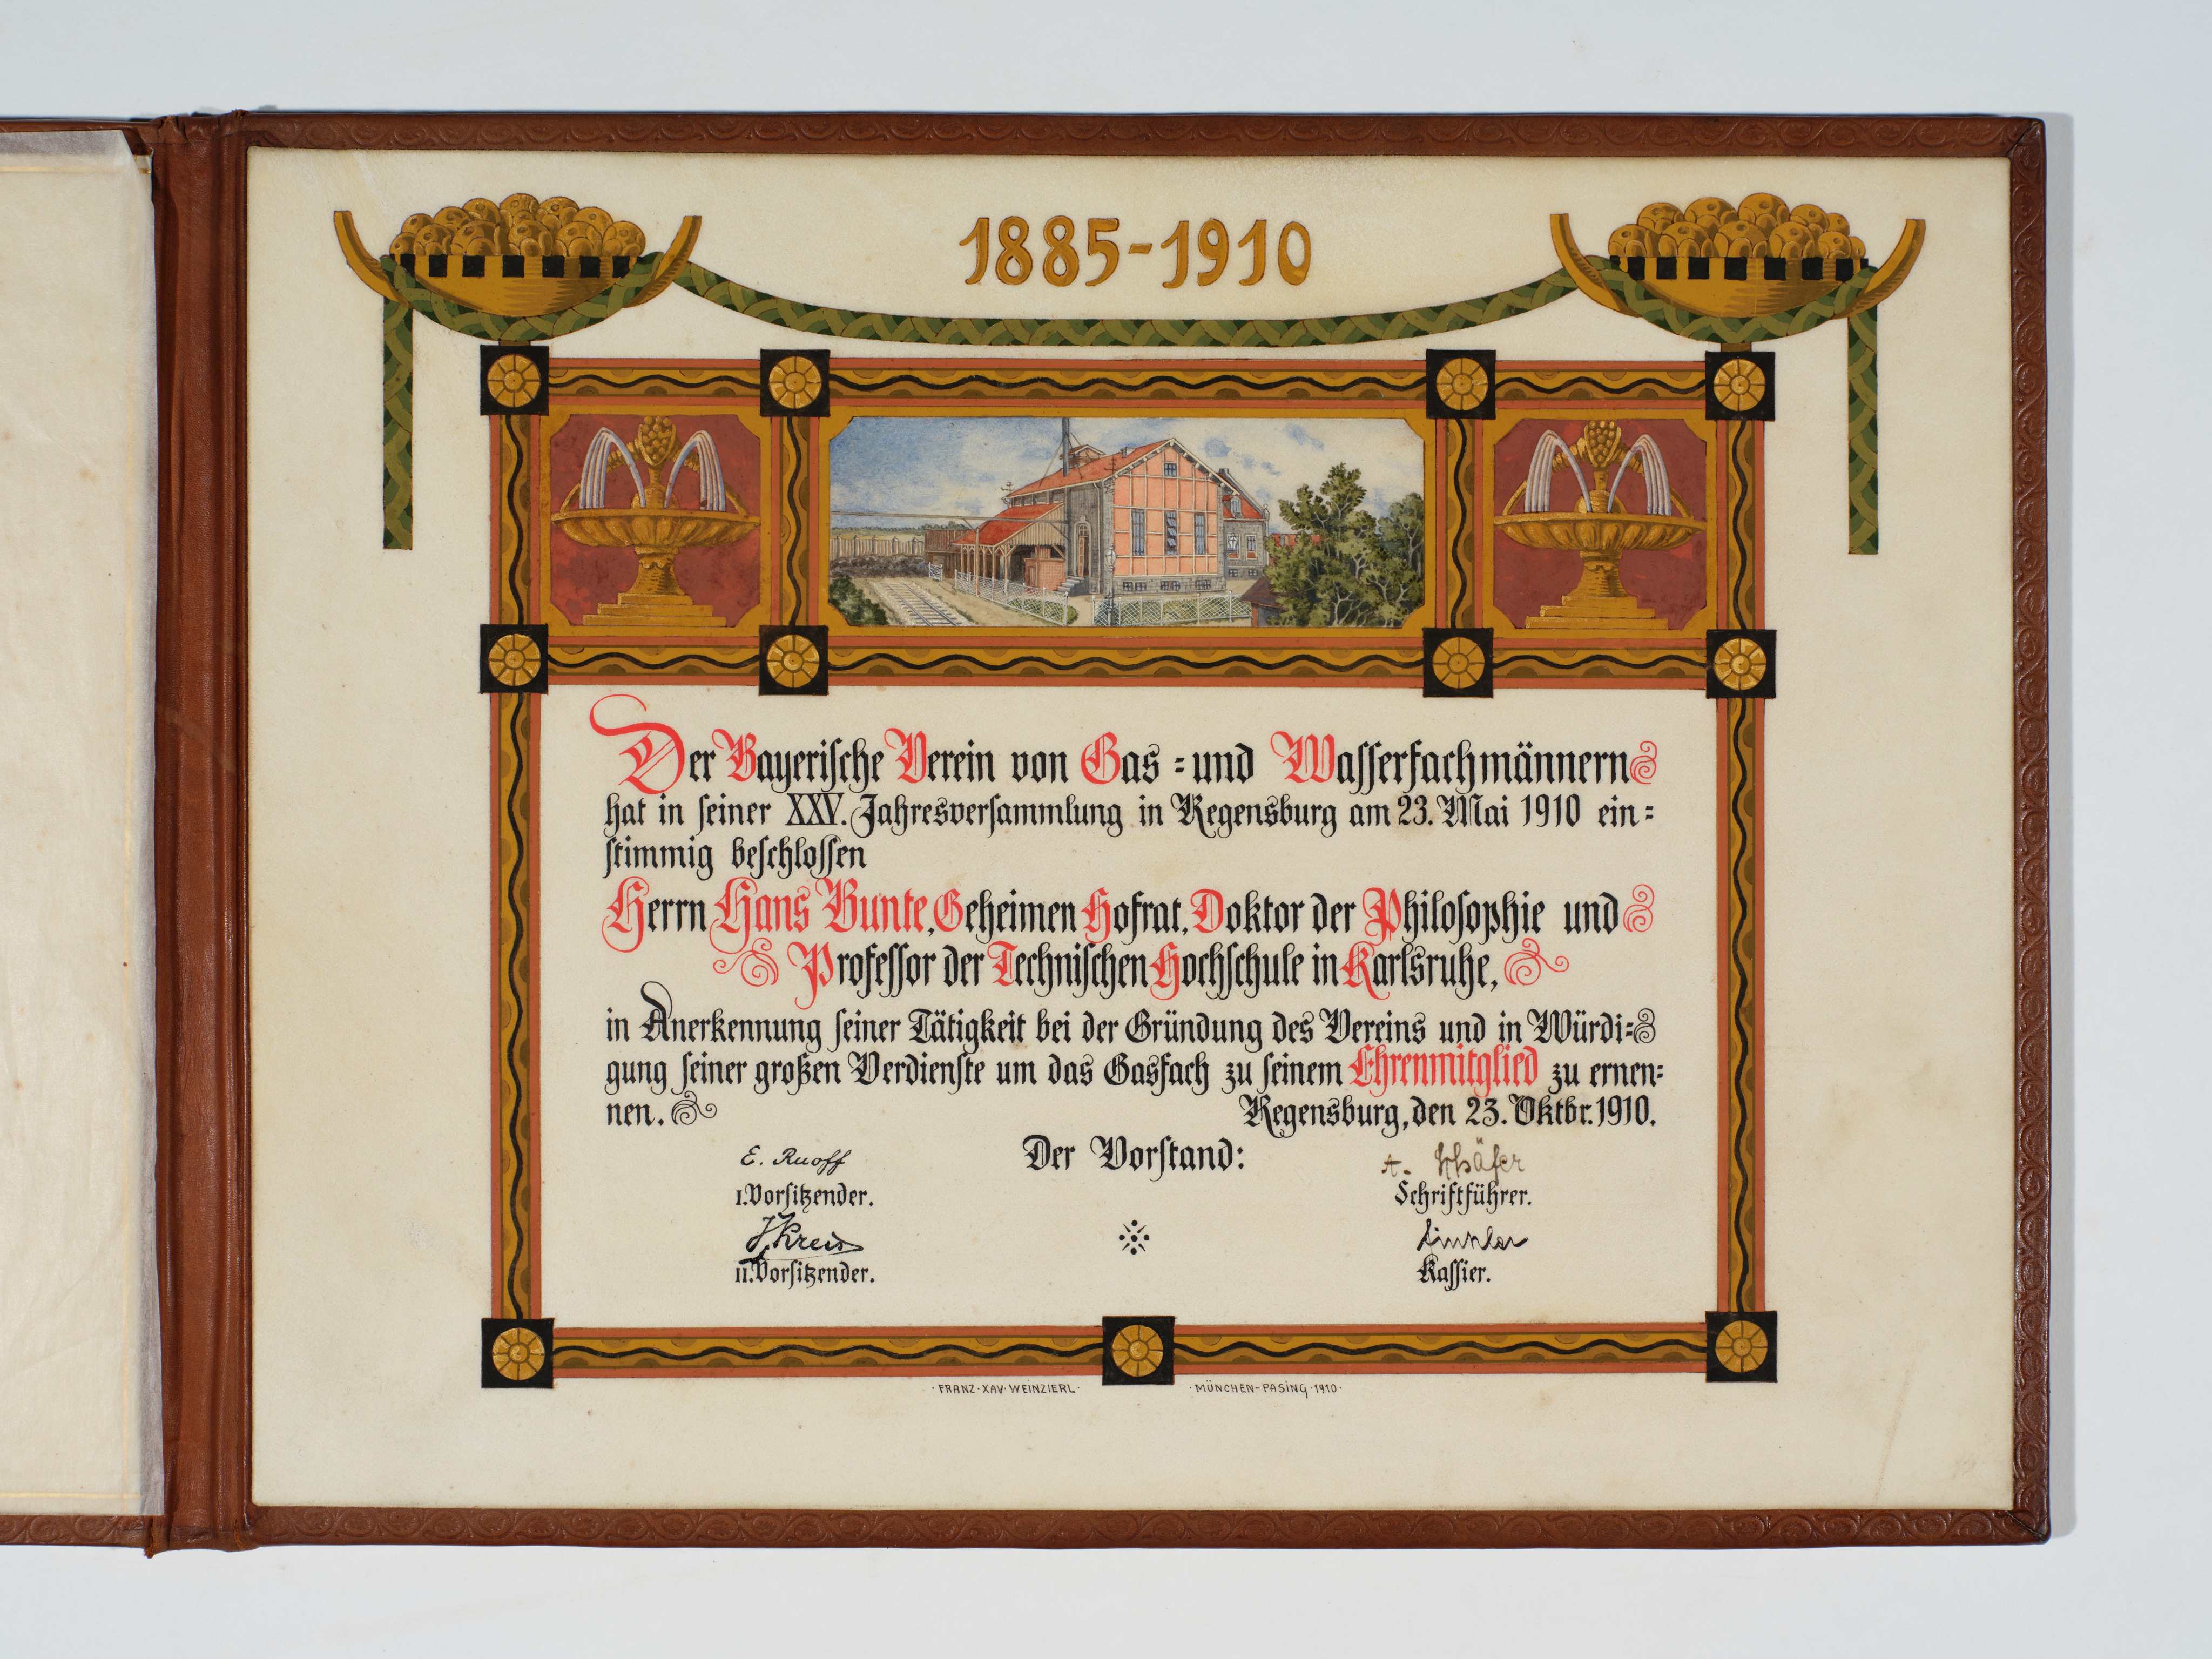 1885-1910
Der Bayerische Verein von Gas- und Wasserfachmännern
hat in seiner XXV. Jahresversammlung in Regensburg am 23. Mai 1910 ein-
stimmig beschlossen
Herrn Hans Bunte, Geheimen Hofrat, Doktor der Philosophie und
Professor der Technischen Hochschule in Karlsruhe,
in Anerkennung seiner Tätigkeit bei der Gründung des Vereins und in Würdi-
gung seiner großen Verdienste um das Gasfach zu seinem Ehrenmitglied zu ernen-
nen.
Regensburg, den 23. Oktbr. 1910.
Der Vorstand:
E. Ruoff
I. Vorsitzender.
A. Schäfer
Schriftführer.
II. Vorsitzender.
Kassier.
·FRANZ·XAV·WEINZIERL· ·MÜNCHEN-PASING·1910·